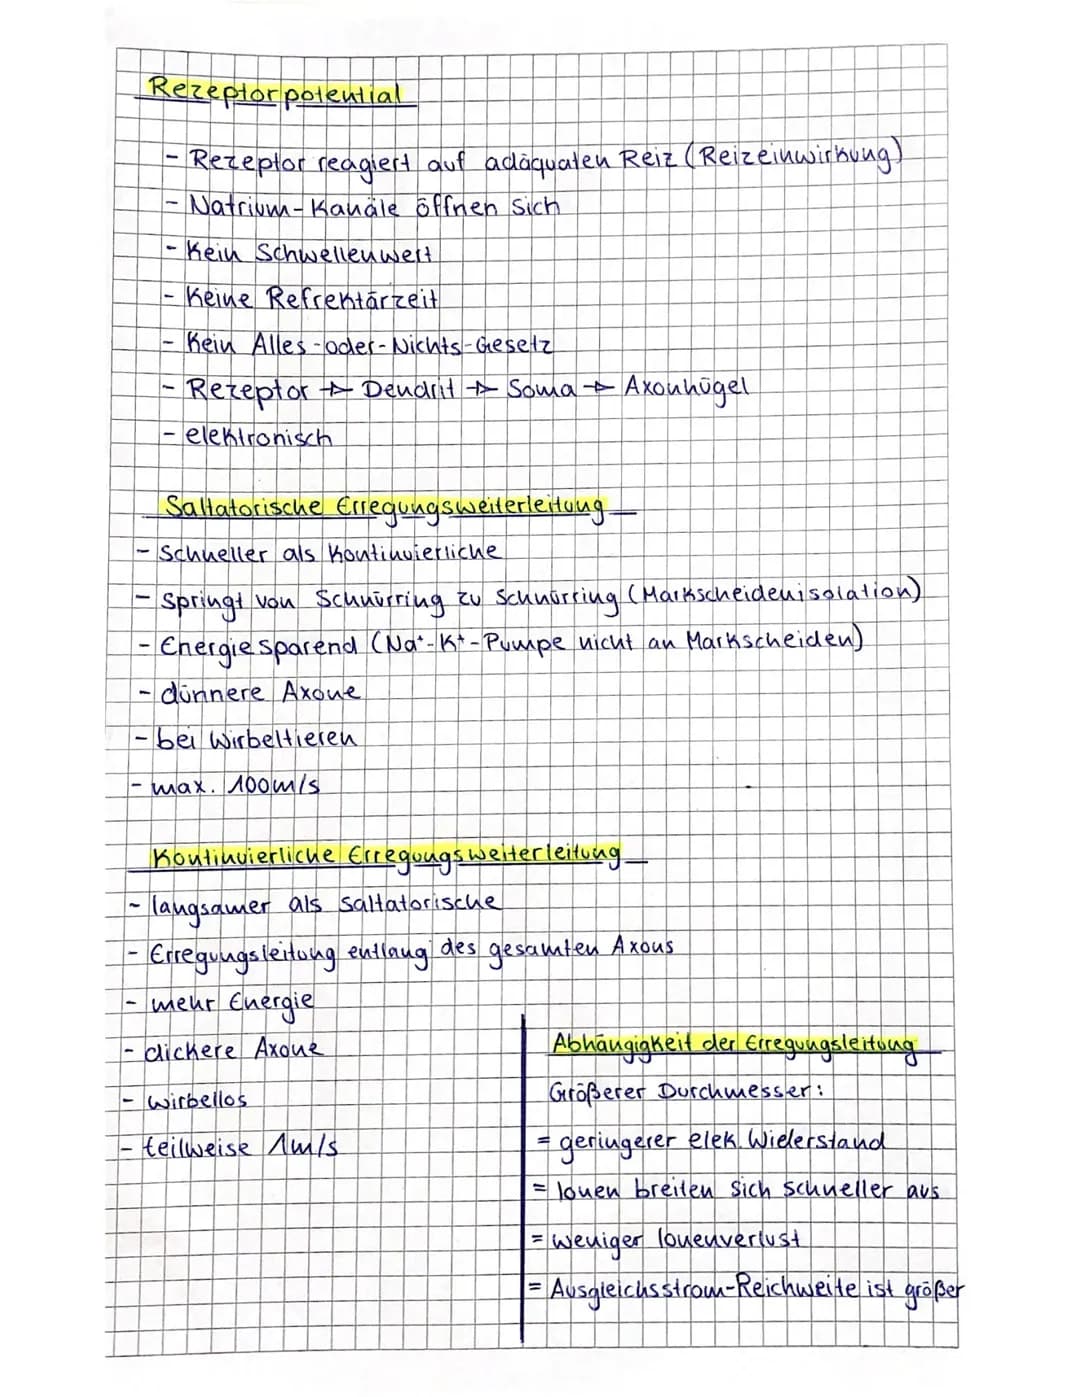 Rezeptorpotential
- Rezeptor reagiert auf adäquaten Reiz (Reizeinwirkung)
- Natrium-Kanäle öffnen sich
- Kein Schwellenwert
- Keine Refrektärzeit
- Kein Alles-oder-Nichts-Gesetz
- Rezeptor → Dendrit → Soma → Axonhügel
- elektronisch
Saltatorische Erregungsweiterleitung
- Schneller als Kontinuierliche
- Springt von Schnürring zu Schnürring (Markscheidenisolation)
- Energiesparend (Na⁺-K⁺-Pumpe nicht an Markscheiden)
- dünnere Axone
- bei Wirbeltieren
- max. 100m/s
Kontinuierliche Erregungsweiterleitung
- langsamer als saltatorische
- Erregungsleitung entlang des gesamten Axons
- mehr Energie
- dickere Axone
- Wirbellos
- teilweise 1m/s
Abhängigkeit der Erregungsleitung
Größerer Durchmesser:
= geringerer elek. Widerstand
= Ionen breiten sich schneller aus
= weniger Ionenverlust
= Ausgleichsstrom-Reichweite ist größer